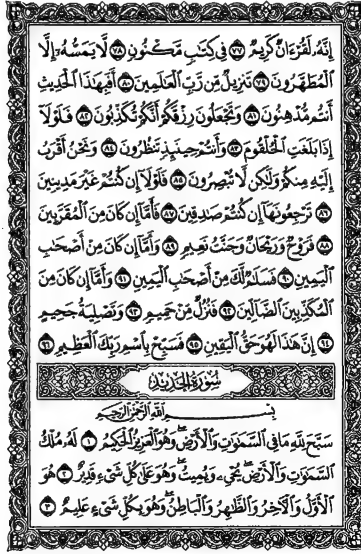 إِنَّهُۥ لَقُرْءَانٌ كَرِيمٌ ٧٧ فِي كِتَٰبٍ مَّكْنُونٍ ٧٨ لَّا يَمَسُّهُۥٓ إِلَّا
ٱلْمُطَهَّرُونَ ٧٩ تَنزِيلٌ مِّن رَّبِّ ٱلْعَٰلَمِينَ ٨٠ أَفَبِهَٰذَا ٱلْحَدِيثِ
أَنتُم مُّدْهِنُونَ ٨١ وَتَجْعَلُونَ رِزْقَكُمْ أَنَّكُمْ تُكَذِّبُونَ ٨٢ فَلَوْلَآ
إِذَا بَلَغَتِ ٱلْحُلْقُومَ ٨٣ وَأَنتُمْ حِينَئِذٍ تَنظُرُونَ ٨٤ وَنَحْنُ أَقْرَبُ
إِلَيْهِ مِنكُمْ وَلَٰكِن لَّا تُبْصِرُونَ ٨٥ فَلَوْلَآ إِن كُنتُمْ غَيْرَ مَدِينِينَ
٨٦ تَرْجِعُونَهَآ إِن كُنتُمْ صَٰدِقِينَ ٨٧ فَأَمَّآ إِن كَانَ مِنَ ٱلْمُقَرَّبِينَ
٨٨ فَرَوْحٌ وَرَيْحَانٌ وَجَنَّتُ نَعِيمٍ ٨٩ وَأَمَّآ إِن كَانَ مِنْ أَصْحَٰبِ
ٱلْيَمِينِ ٩٠ فَسَلَٰمٌ لَّكَ مِنْ أَصْحَٰبِ ٱلْيَمِينِ ٩١ وَأَمَّآ إِن كَانَ مِنَ
ٱلْمُكَذِّبِينَ ٱلضَّآلِّينَ ٩٢ فَنُزُلٌ مِّنْ حَمِيمٍ ٩٣ وَتَصْلِيَةُ جَحِيمٍ
٩٤ إِنَّ هَٰذَا لَهُوَ حَقُّ ٱلْيَقِينِ ٩٥ فَسَبِّحْ بِٱسْمِ رَبِّكَ ٱلْعَظِيمِ ٩٦
سُورَةُ الحَدِيدِ
بِسْمِ ٱللَّهِ ٱلرَّحْمَٰنِ ٱلرَّحِيمِ
سَبَّحَ لِلَّهِ مَا فِي ٱلسَّمَٰوَٰتِ وَٱلْأَرْضِ ۖ وَهُوَ ٱلْعَزِيزُ ٱلْحَكِيمُ ١ لَهُۥ مُلْكُ
ٱلسَّمَٰوَٰتِ وَٱلْأَرْضِ ۖ يُحْيِۦ وَيُمِيتُ ۖ وَهُوَ عَلَىٰ كُلِّ شَيْءٍ قَدِيرٌ ٢ هُوَ
ٱلْأَوَّلُ وَٱلْءَاخِرُ وَٱلظَّٰهِرُ وَٱلْبَاطِنُ ۖ وَهُوَ بِكُلِّ شَيْءٍ عَلِيمٌ ٣